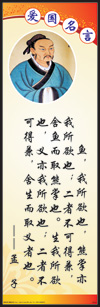 爱国名言
鱼，我所欲也，熊掌亦
我所欲也；二者不可得兼，
舍鱼而取熊掌也。生我所欲
也，义亦我所欲也；二者不
可得兼，舍生而取义者也。
——孟子